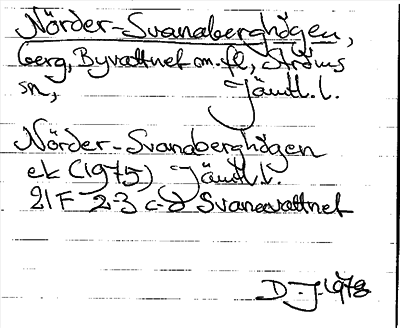 Nörder-Svanaberghögen,
berg, Byvattnet m.fl., Ströms
sn, Jämtl.l.
Nörder-Svanaberghögen
ek (1975) Jämtl.l.
21F 2-3 c-d Svanavattnet
D.J. 1978